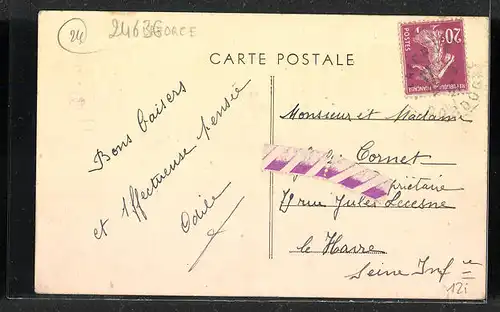 24
24636
LAFORCE
CARTE POSTALE
20c
POSTES
REPUBLIQUE FRANÇAISE
Bons baisers
et affectueuse pensée
Odile
Monsieur et Madame
Cornet
priétaire
79 rue Jules Lecesne
le Havre
Seine Infre
12i